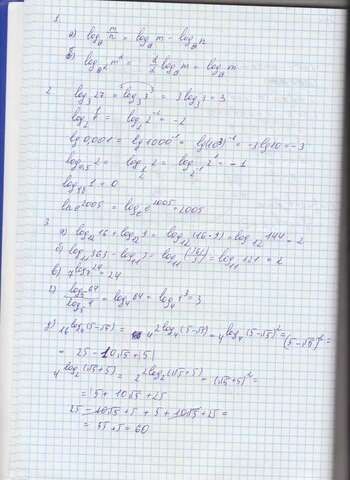 1.
а) log_a m/n = log_a m - log_a n
б) log_{a^2} m^2 = 2/2 log_a m = log_a m
2. log_3 27 = log_3 3^3 = 3 log_3 3 = 3
log_2 = log_2 2^{-2} = -2
lg 0,001 = lg 1000^{-1} = lg(10^3)^{-1} = -3 lg 10 = -3
log_{0,5} 2 = log_{1/2} 2 = log_{2^{-1}} 2^1 = -1
1 = 0
ln e^{2005} = log_e e^{2005} = 2005
3. а) log_{12} 16 + log_{12} 9 = log_{12} (16·9) = log_{12} 144 = 2
б) log_{11} 363 - log_{11} 3 = log_{11} (363/3) = log_{11} 121 = 2
в) 7^{log_7 24} = 24
г) log_5 64 / log_5 4 = log_4 64 = log_4 4^3 = 3
д) 16^{log_4 (5-√5)} = 4^{2 log_4 (5-√5)} = 4^{log_4 (5-√5)^2} = (5-√5)^2 =
= 25 - 10√5 + 5
4^{log_2 (√5+5)} = 2^{2 log_2 (√5+5)} = (√5+5)^2 =
= 5 + 10√5 + 25
25 - 10√5 + 5 + 5 + 10√5 + 25 =
= 55 + 5 = 60